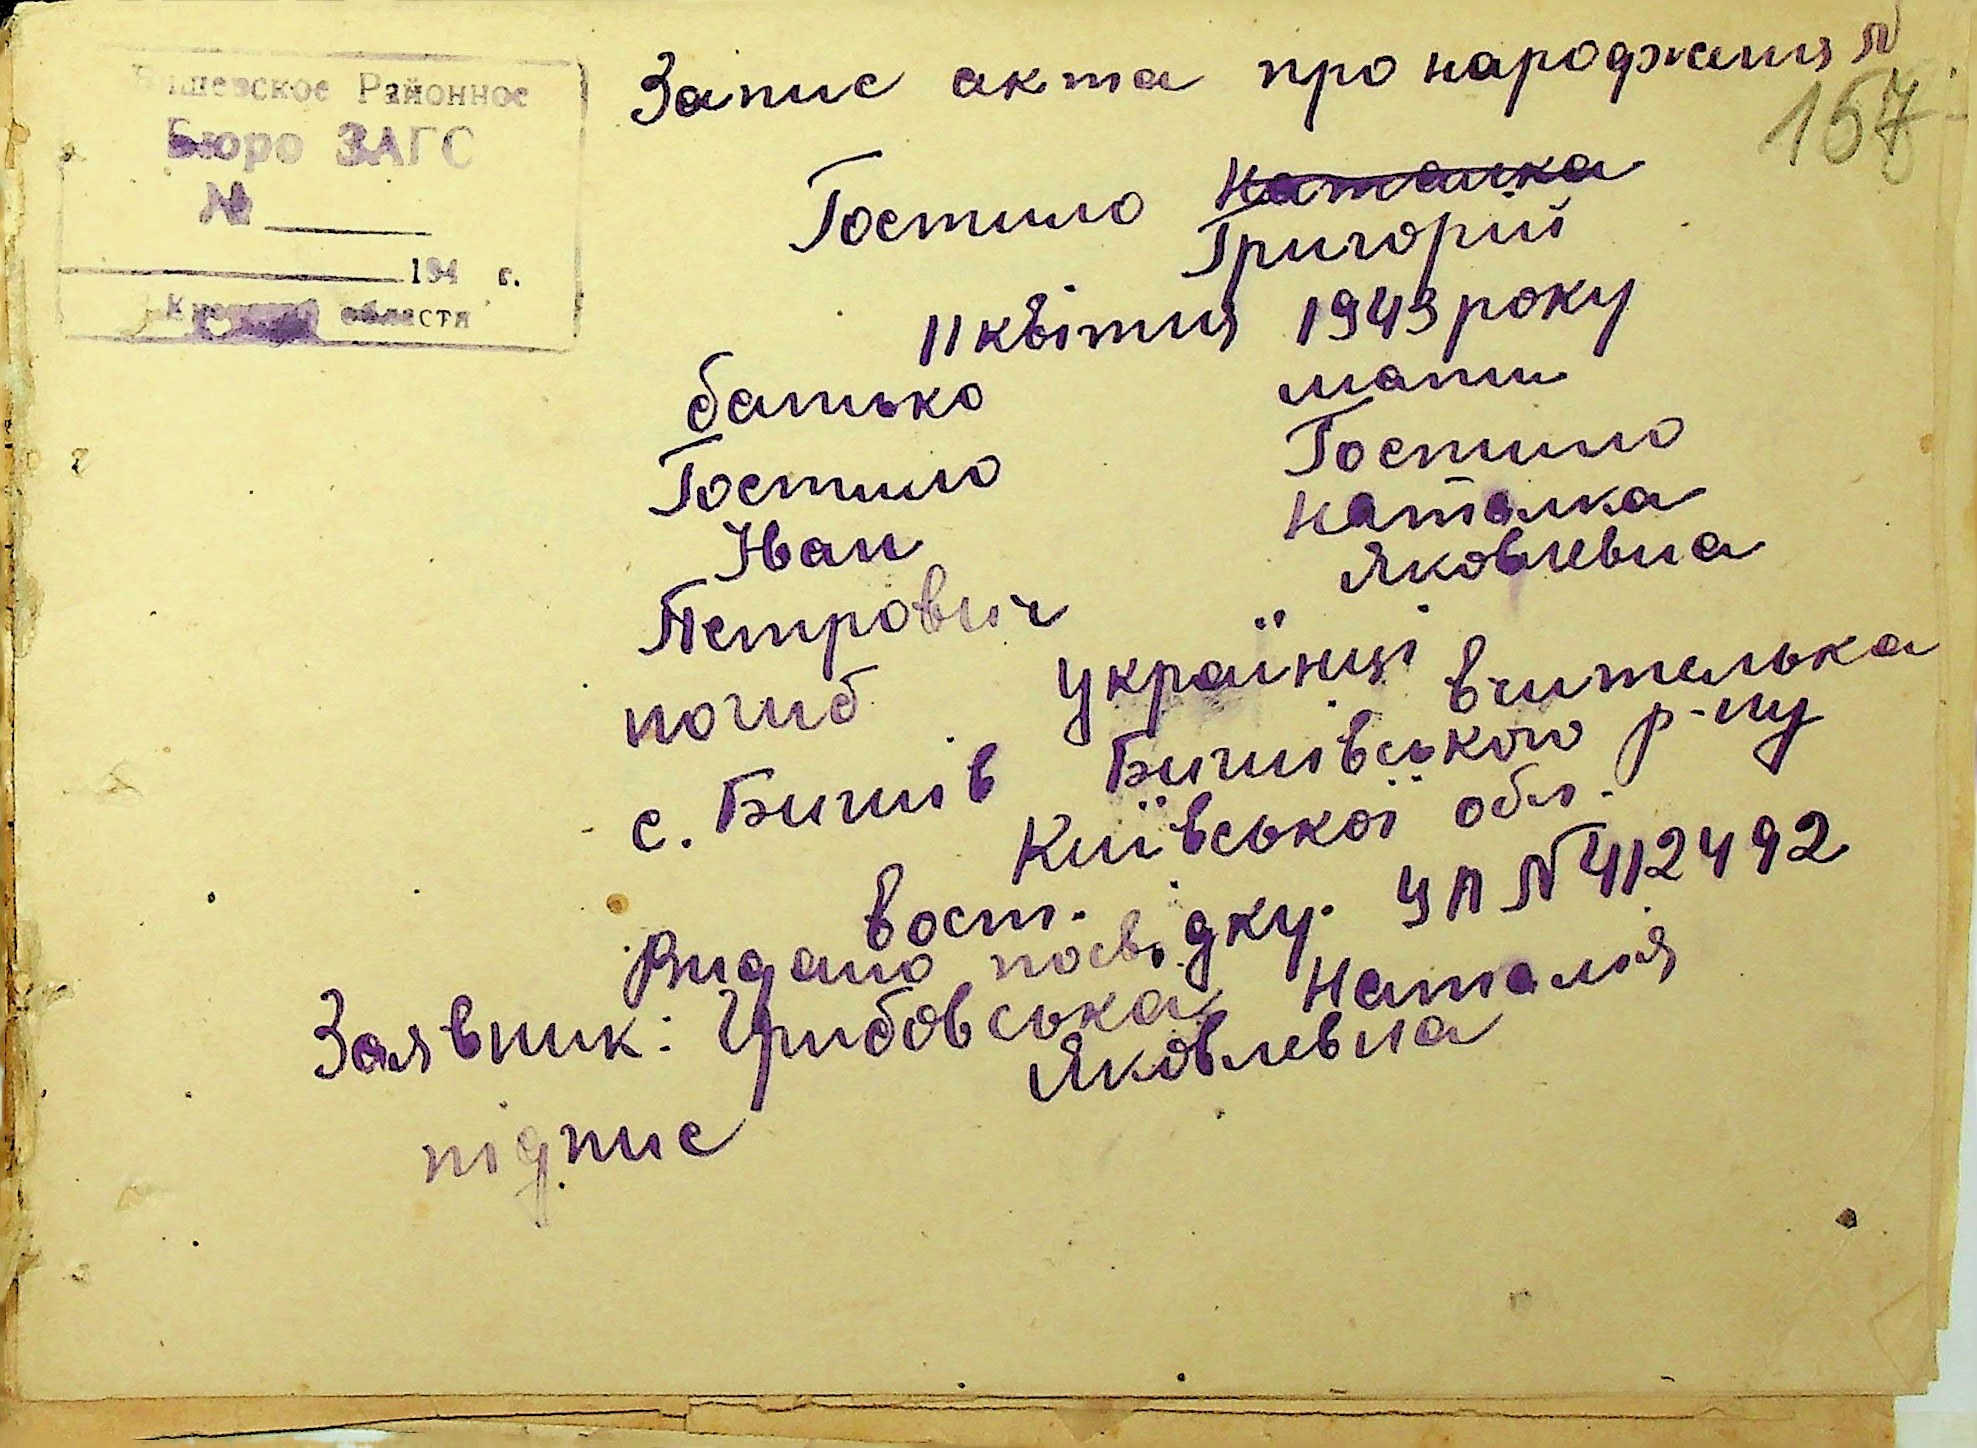 Бишевское Районное
Бюро ЗАГС
№
194 г.
Киевской области
Запис акта про народження №
157
Гостило Наталка
Григорій
11 квітня 1943 року
батько мати
Гостило Гостило
Іван Наталка
Петрович Яковлевна
погиб українці вчителька
с. Бишів Бишівського р-ну
Київської обл.
вост.
Видано посвідку. УЛ №412492
Заявник: Грибовська Наталія
Яковлевна
підпис